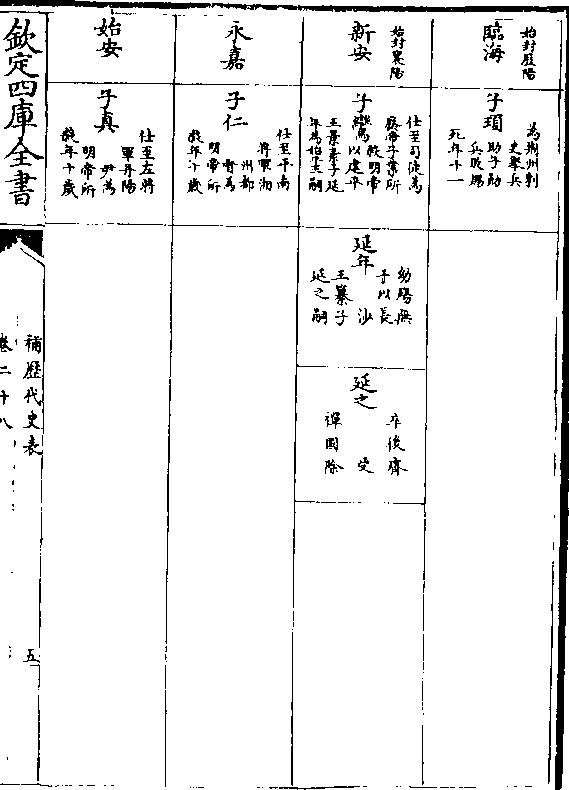 始封歷陽
臨海
子頊
為荆州刺
史舉兵
助子勛
兵敗賜
死年十一
始封襄陽
新安
子鸞
仕至司徒為
廢帝子業所
殺明帝
以建平
王景素子延
年為 王嗣
延年
幼薨無
子以長
沙
王纂子
延之嗣
延之
卒後齊
受
禪國除
永嘉
子仁
仕至平南
將軍湘
州都
督為
明帝所
殺年十歲
始安
子真
仕至左將
軍丹陽
尹為
明帝所
殺年十歲
欽定四庫全書
補歷代史表
卷二十八
五